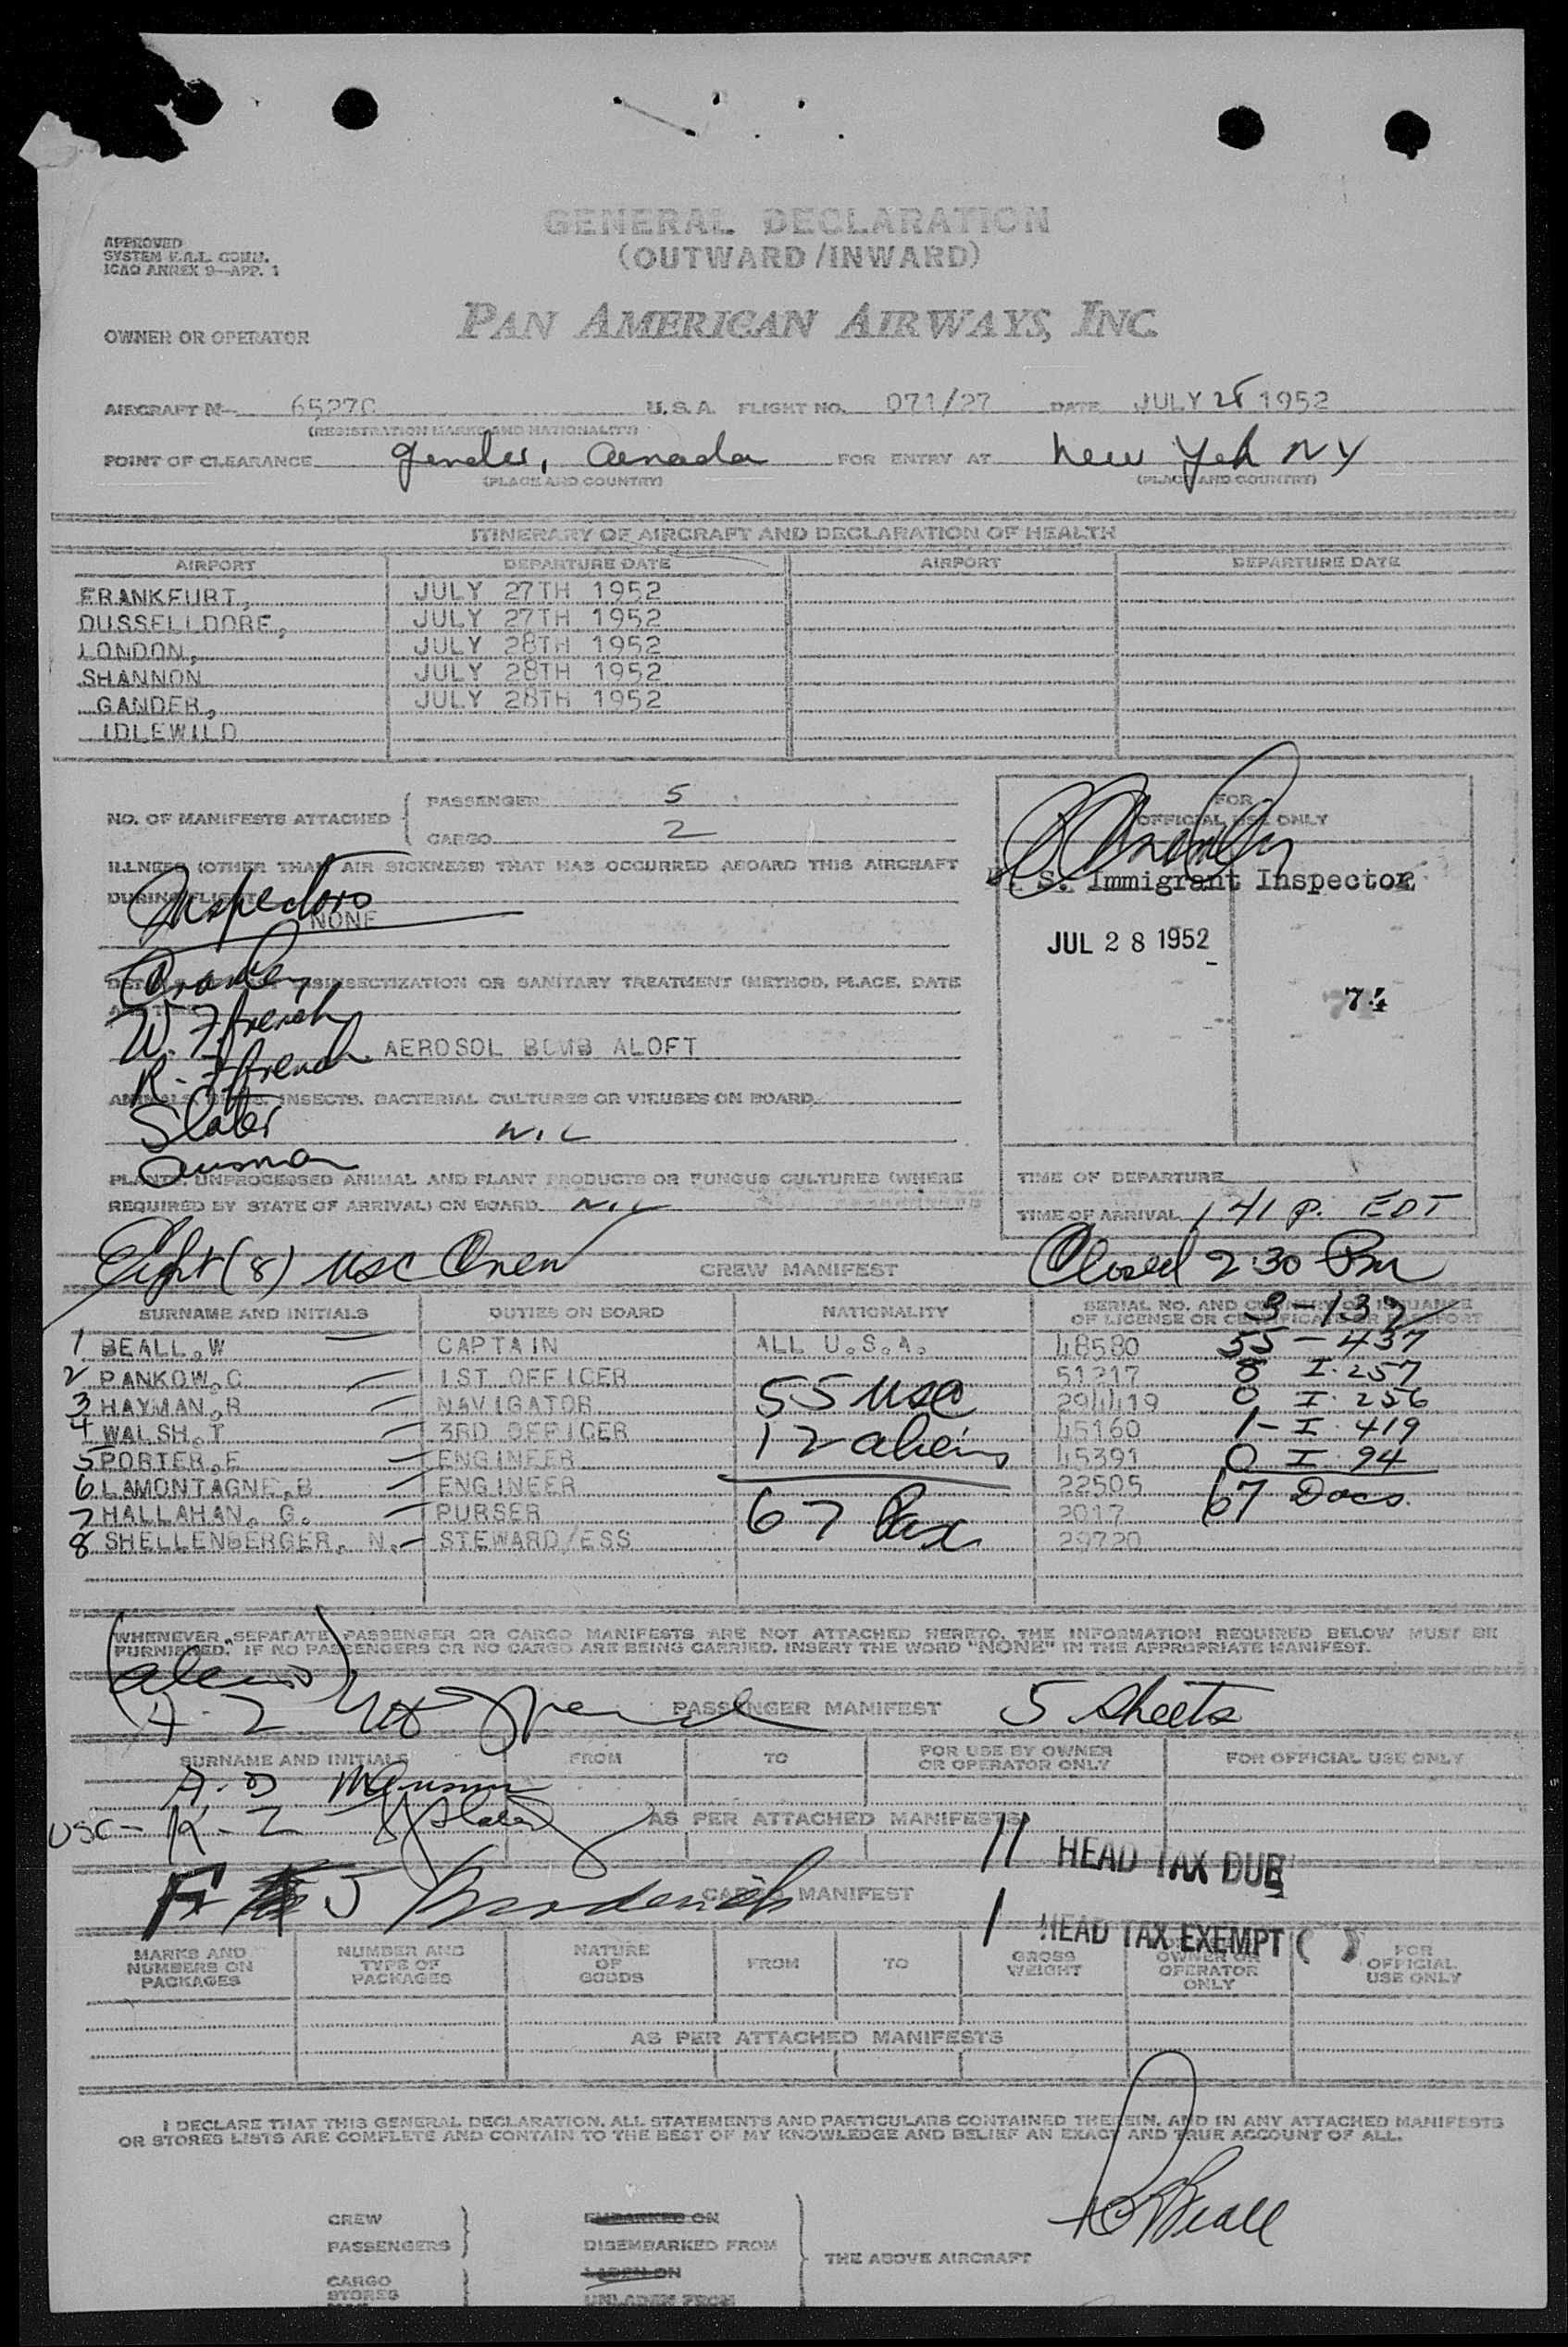 GENERAL DECLARATION
(OUTWARD/INWARD)
APPROVED
SYSTEM F.A.L. COMM.
ICAO ANNEX 9—APP. 1
OWNER OR OPERATOR PAN AMERICAN AIRWAYS, INC.
AIRCRAFT N— 6527C U.S.A. FLIGHT NO. 071/27 DATE JULY 28 1952
(REGISTRATION MARKS AND NATIONALITY)
POINT OF CLEARANCE Gander, Canada FOR ENTRY AT New York NY
(PLACE AND COUNTRY) (PLACE AND COUNTRY)
ITINERARY OF AIRCRAFT AND DECLARATION OF HEALTH
AIRPORT DEPARTURE DATE AIRPORT DEPARTURE DATE
FRANKFURT, JULY 27TH 1952
DUSSELLDORF, JULY 27TH 1952
LONDON, JULY 28TH 1952
SHANNON JULY 28TH 1952
GANDER, JULY 28TH 1952
IDLEWILD
NO. OF MANIFESTS ATTACHED
PASSENGER 5
CARGO 2
FOR
OFFICIAL USE ONLY
ILLNESS (OTHER THAN AIR SICKNESS) THAT HAS OCCURRED ABOARD THIS AIRCRAFT
DURING FLIGHT
U. S. Immigrant Inspector
Inspectors
NONE
JUL 28 1952
DISINSECTIZATION OR SANITARY TREATMENT (METHOD, PLACE, DATE
74
W. F. French
AEROSOL BOMB ALOFT
R. F. French
ANIMALS, BIRDS, INSECTS, BACTERIAL CULTURES OR VIRUSES ON BOARD
Slater
NIL
PLANTS, UNPROCESSED ANIMAL AND PLANT PRODUCTS OR FUNGUS CULTURES (WHERE
REQUIRED BY STATE OF ARRIVAL) ON BOARD NIL
TIME OF DEPARTURE
TIME OF ARRIVAL 1 41 P. EDT
Eight (8) USC Crew CREW MANIFEST Closed 2:30 PM
SURNAME AND INITIALS DUTIES ON BOARD NATIONALITY SERIAL NO. AND COUNTRY OF ISSUANCE
OF LICENSE OR CERTIFICATE OR PASSPORT
3-132
1 BEALL.W CAPTAIN ALL U.S.A. 48580 55 - 437
2 PANKOW.C 1ST OFFICER 51217 0 I-257
3 HAYMAN.R NAVIGATOR 55 USC 294419 0 I 256
4 WALSH.T 3RD OFFICER 12 aliens 45160 1- I 419
5 PORTER.F ENGINEER 45391 0 I 94
6 LAMONTAGNE.B ENGINEER 22505 67 Docs.
7 HALLAHAN. G. PURSER 67 Pax 2017
8 SHELLENBERGER. N. STEWARD/ESS 29720
WHENEVER SEPARATE PASSENGER OR CARGO MANIFESTS ARE NOT ATTACHED HERETO, THE INFORMATION REQUIRED BELOW MUST BE
FURNISHED. IF NO PASSENGERS OR NO CARGO ARE BEING CARRIED, INSERT THE WORD "NONE" IN THE APPROPRIATE MANIFEST.
(aliens)
A-Z PASSENGER MANIFEST 5 sheets
SURNAME AND INITIALS FROM TO FOR USE BY OWNER
OR OPERATOR ONLY FOR OFFICIAL USE ONLY
USC- K-Z Slater AS PER ATTACHED MANIFESTS
11 HEAD TAX DUE
CARGO MANIFEST
1 HEAD TAX EXEMPT ( )
MARKS AND
NUMBERS ON
PACKAGES NUMBER AND
TYPE OF
PACKAGES NATURE
OF
GOODS FROM TO GROSS
WEIGHT OWNER OR
OPERATOR
ONLY FOR
OFFICIAL
USE ONLY
AS PER ATTACHED MANIFESTS
I DECLARE THAT THIS GENERAL DECLARATION, ALL STATEMENTS AND PARTICULARS CONTAINED THEREIN, AND IN ANY ATTACHED MANIFESTS
OR STORES LISTS ARE COMPLETE AND CONTAIN TO THE BEST OF MY KNOWLEDGE AND BELIEF AN EXACT AND TRUE ACCOUNT OF ALL.
Beall
CREW EMBARKED ON
PASSENGERS DISEMBARKED FROM
THE ABOVE AIRCRAFT
CARGO LADEN ON
STORES UNLADEN FROM